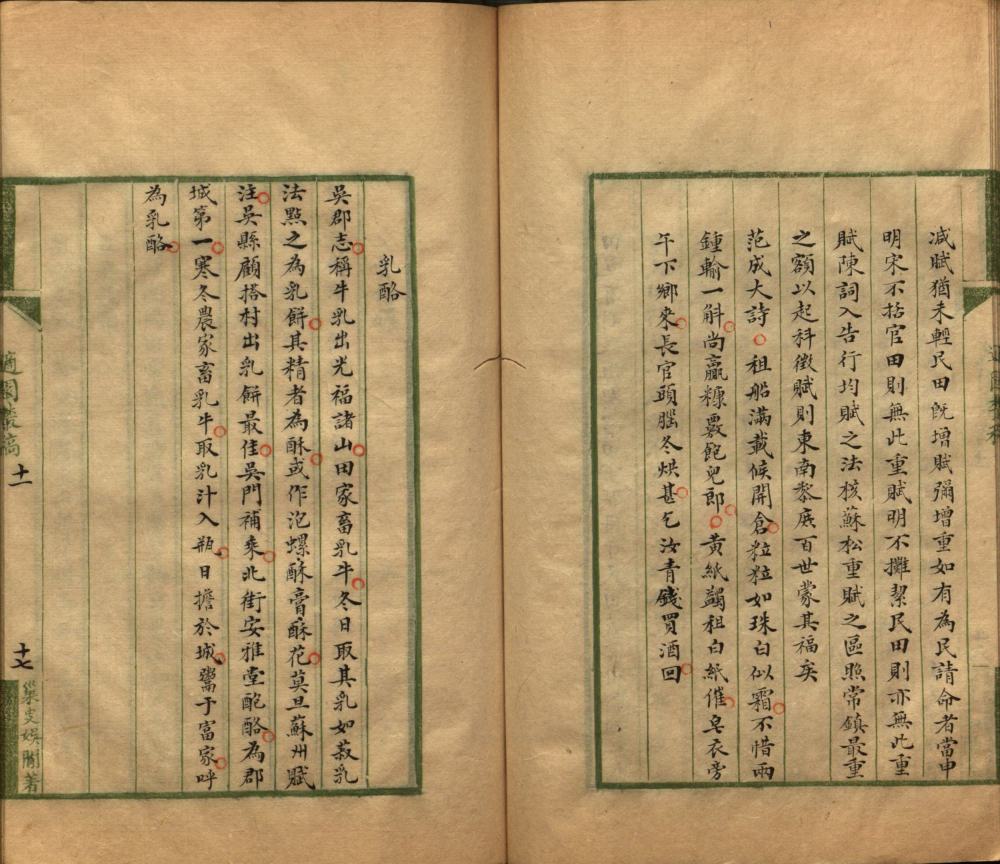 減賦猶未輕民田既增賦彌增重如有為民請命者當申
明宋不括官田則無此重賦明不攤絜民田則亦無此重
賦陳詞入告行均賦之法核蘇松重賦之區照常鎮最重
之額以起科徵賦則東南黎庶百世蒙其福矣
范成大詩○租船滿載候開倉粒粒如珠白似霜不惜兩
鍾輸一斛尚贏糠覈飽兒郎○黄紙蠲租白紙催皂衣旁
午下鄉來長官頭腦冬烘甚乞汝青錢買酒回
乳酪
吳郡志稱牛乳出光福諸山田家畜乳牛冬日取其乳如菽乳
法點之為乳餅其精者為酥或作泡螺酥膏酥花莫旦蘇州賦
注吳縣顧搭村出乳餅最佳吳門補乘北街安雅堂酏酪為郡
城第一寒冬農家畜乳牛取乳汁入瓶日擔於城鬻于富家呼
為乳酪
適園叢稿
十一
十七
巢叟娛閒著